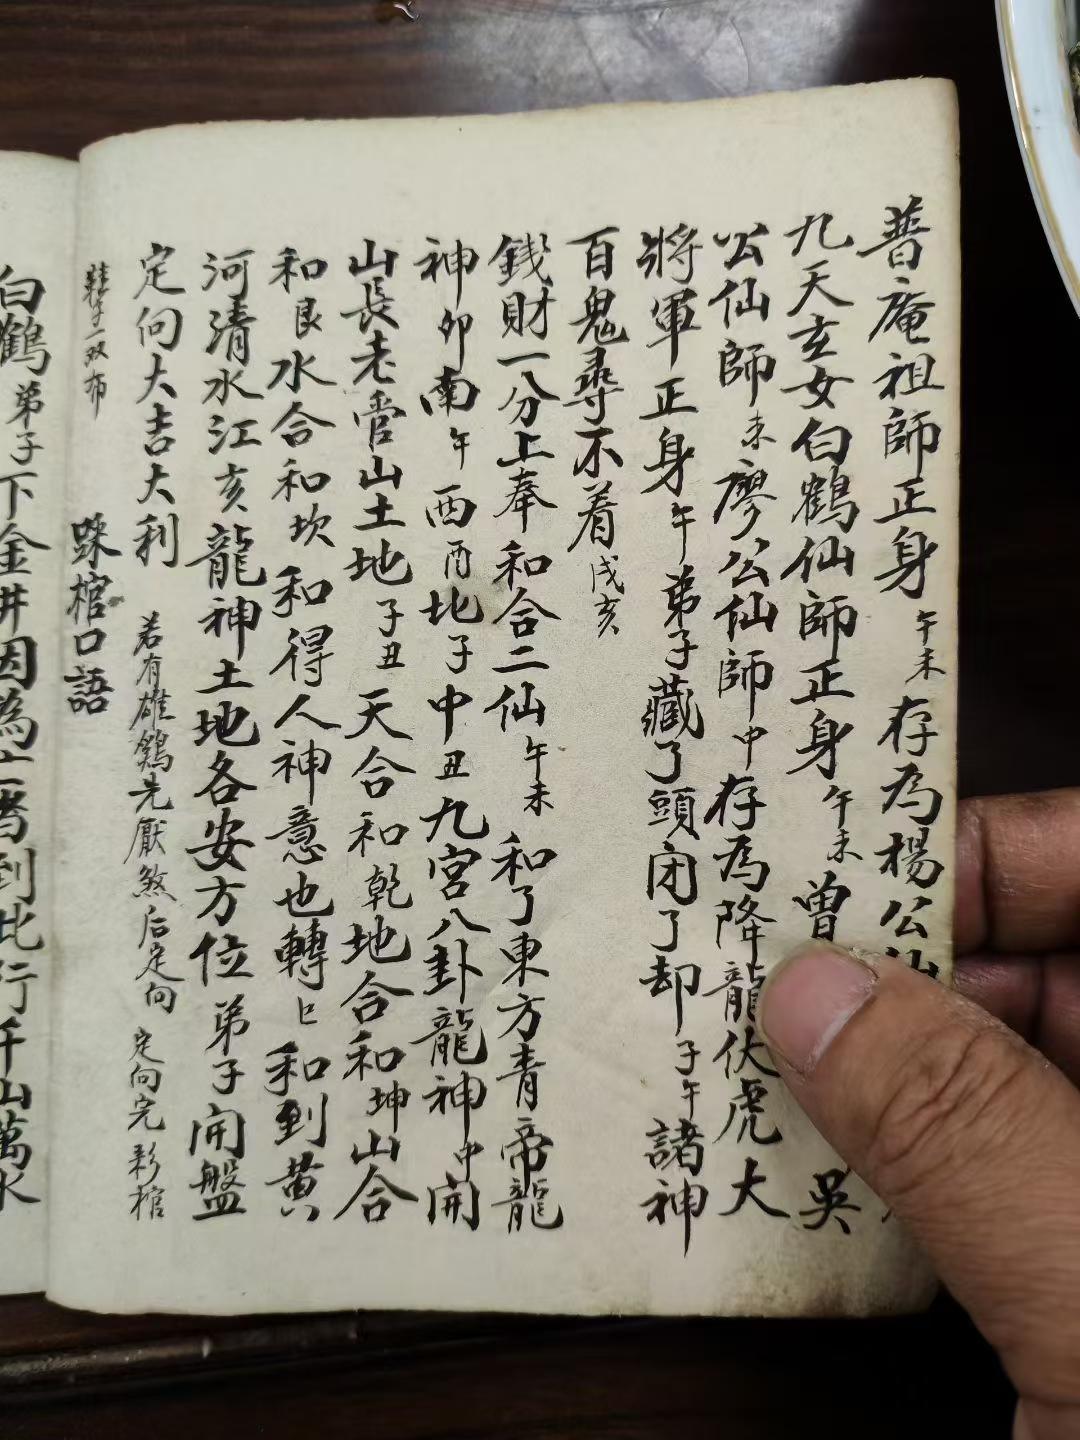 普庵祖師正身午未存為楊公
九天玄女白鶴仙師正身午未曾 吳
公仙師未廖公仙師中存為降龍伏虎大
將軍正身午弟子藏了頭閉了却子午諸神
百鬼尋不着戌亥
錢財一分上奉和合二仙午未和了東方青帝龍
神卯南午西酉北子中丑九宮八卦龍神中開
山長老當山土地子丑天合和乾地合和坤山合
和艮水合和坎和得人神意也轉巳和到黄
河清水江亥龍神土地各安方位弟子開盤
定向大吉大利 若有雄鷄先厭煞后定向 定向完彩棺
鞋一双布
跺棺口語
白鶴弟子下金井因為亡者到此行千山萬水